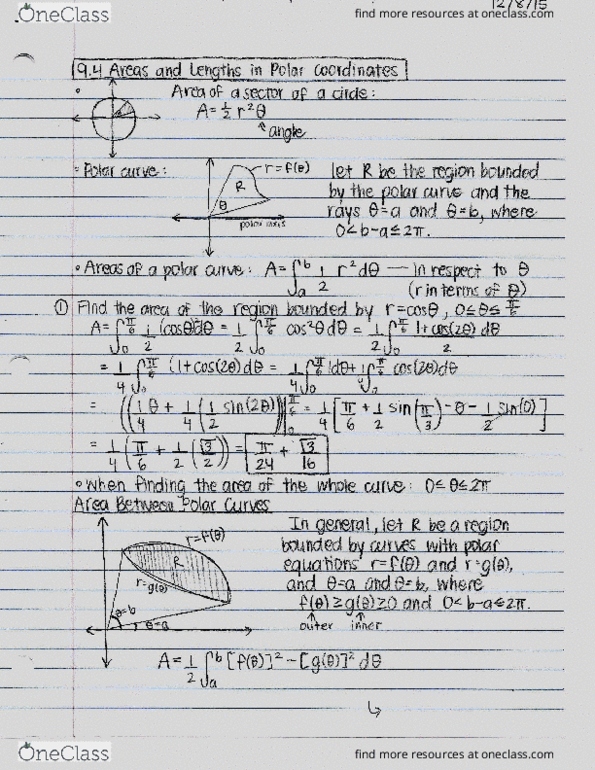 OneClass
12/8/15
find more resources at oneclass.com
9.4 Areas and Lengths in Polar Coordinates
Area of a sector of a circle:
A = 1/2 r²θ
angle
• Polar curve:
r = f(θ)
R
θ
polar axis
let R be the region bounded
by the polar curve and the
rays θ=a and θ=b, where
0<b-a≤2π.
• Areas of a polar curve: A = ∫_a^b 1/2 r² dθ — in respect to θ
(r in terms of θ)
① Find the area of the region bounded by r=cosθ, 0≤θ≤π/6
A = ∫_0^(π/6) 1/2 (cosθ)²dθ = 1/2 ∫_0^(π/6) cos²θdθ = 1/2 ∫_0^(π/6) (1+cos(2θ))/2 dθ
= 1/4 ∫_0^(π/6) (1+cos(2θ)dθ = 1/4 ∫_0^(π/6) 1dθ + 1/4 ∫_0^(π/6) cos(2θ)dθ
= ((1/4 θ + 1/4 (1/2 sin(2θ)))|_0^(π/6) = 1/4 [π/6 + 1/2 sin(π/3) - 0 - 1/2 sin(0)]
= 1/4 (π/6 + 1/2 (√3/2)) = π/24 + √3/16
• When finding the area of the whole curve: 0≤θ≤2π
Area Between Polar Curves
r=f(θ)
R
r=g(θ)
θ=b
θ=a
In general, let R be a region
bounded by curves with polar
equations r=f(θ) and r=g(θ),
and θ=a and θ=b, where
f(θ)≥g(θ)≥0 and 0<b-a≤2π.
outer inner
A = 1/2 ∫_a^b [f(θ)]² - [g(θ)]² dθ
OneClass
find more resources at oneclass.com